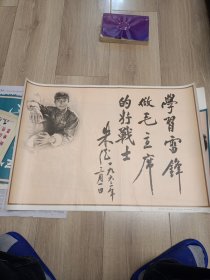 學習雷鋒
做毛主席
的好战士
朱德
一九六三年
二月